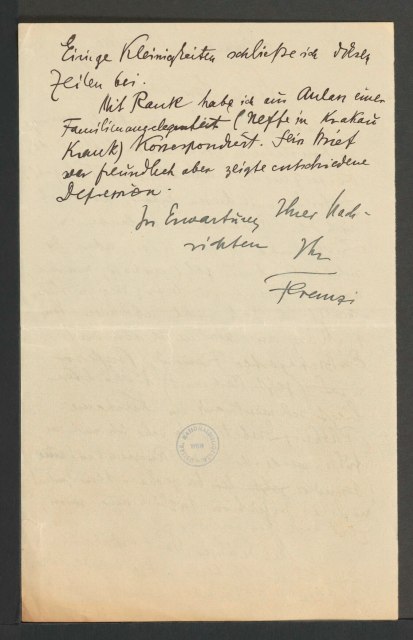 Einige Kleinigkeiten schließe ich diesen
Zeilen bei.
Mit Rank habe ich aus Anlass einer
Familienangelegenheit (Neffe in Krakau
krank) korrespondiert. Sein Brief
war freundlich aber zeigte entschiedene
Depression.
In Erwartung Ihrer Nach-
richten Ihr
Ferenczi
WIEN